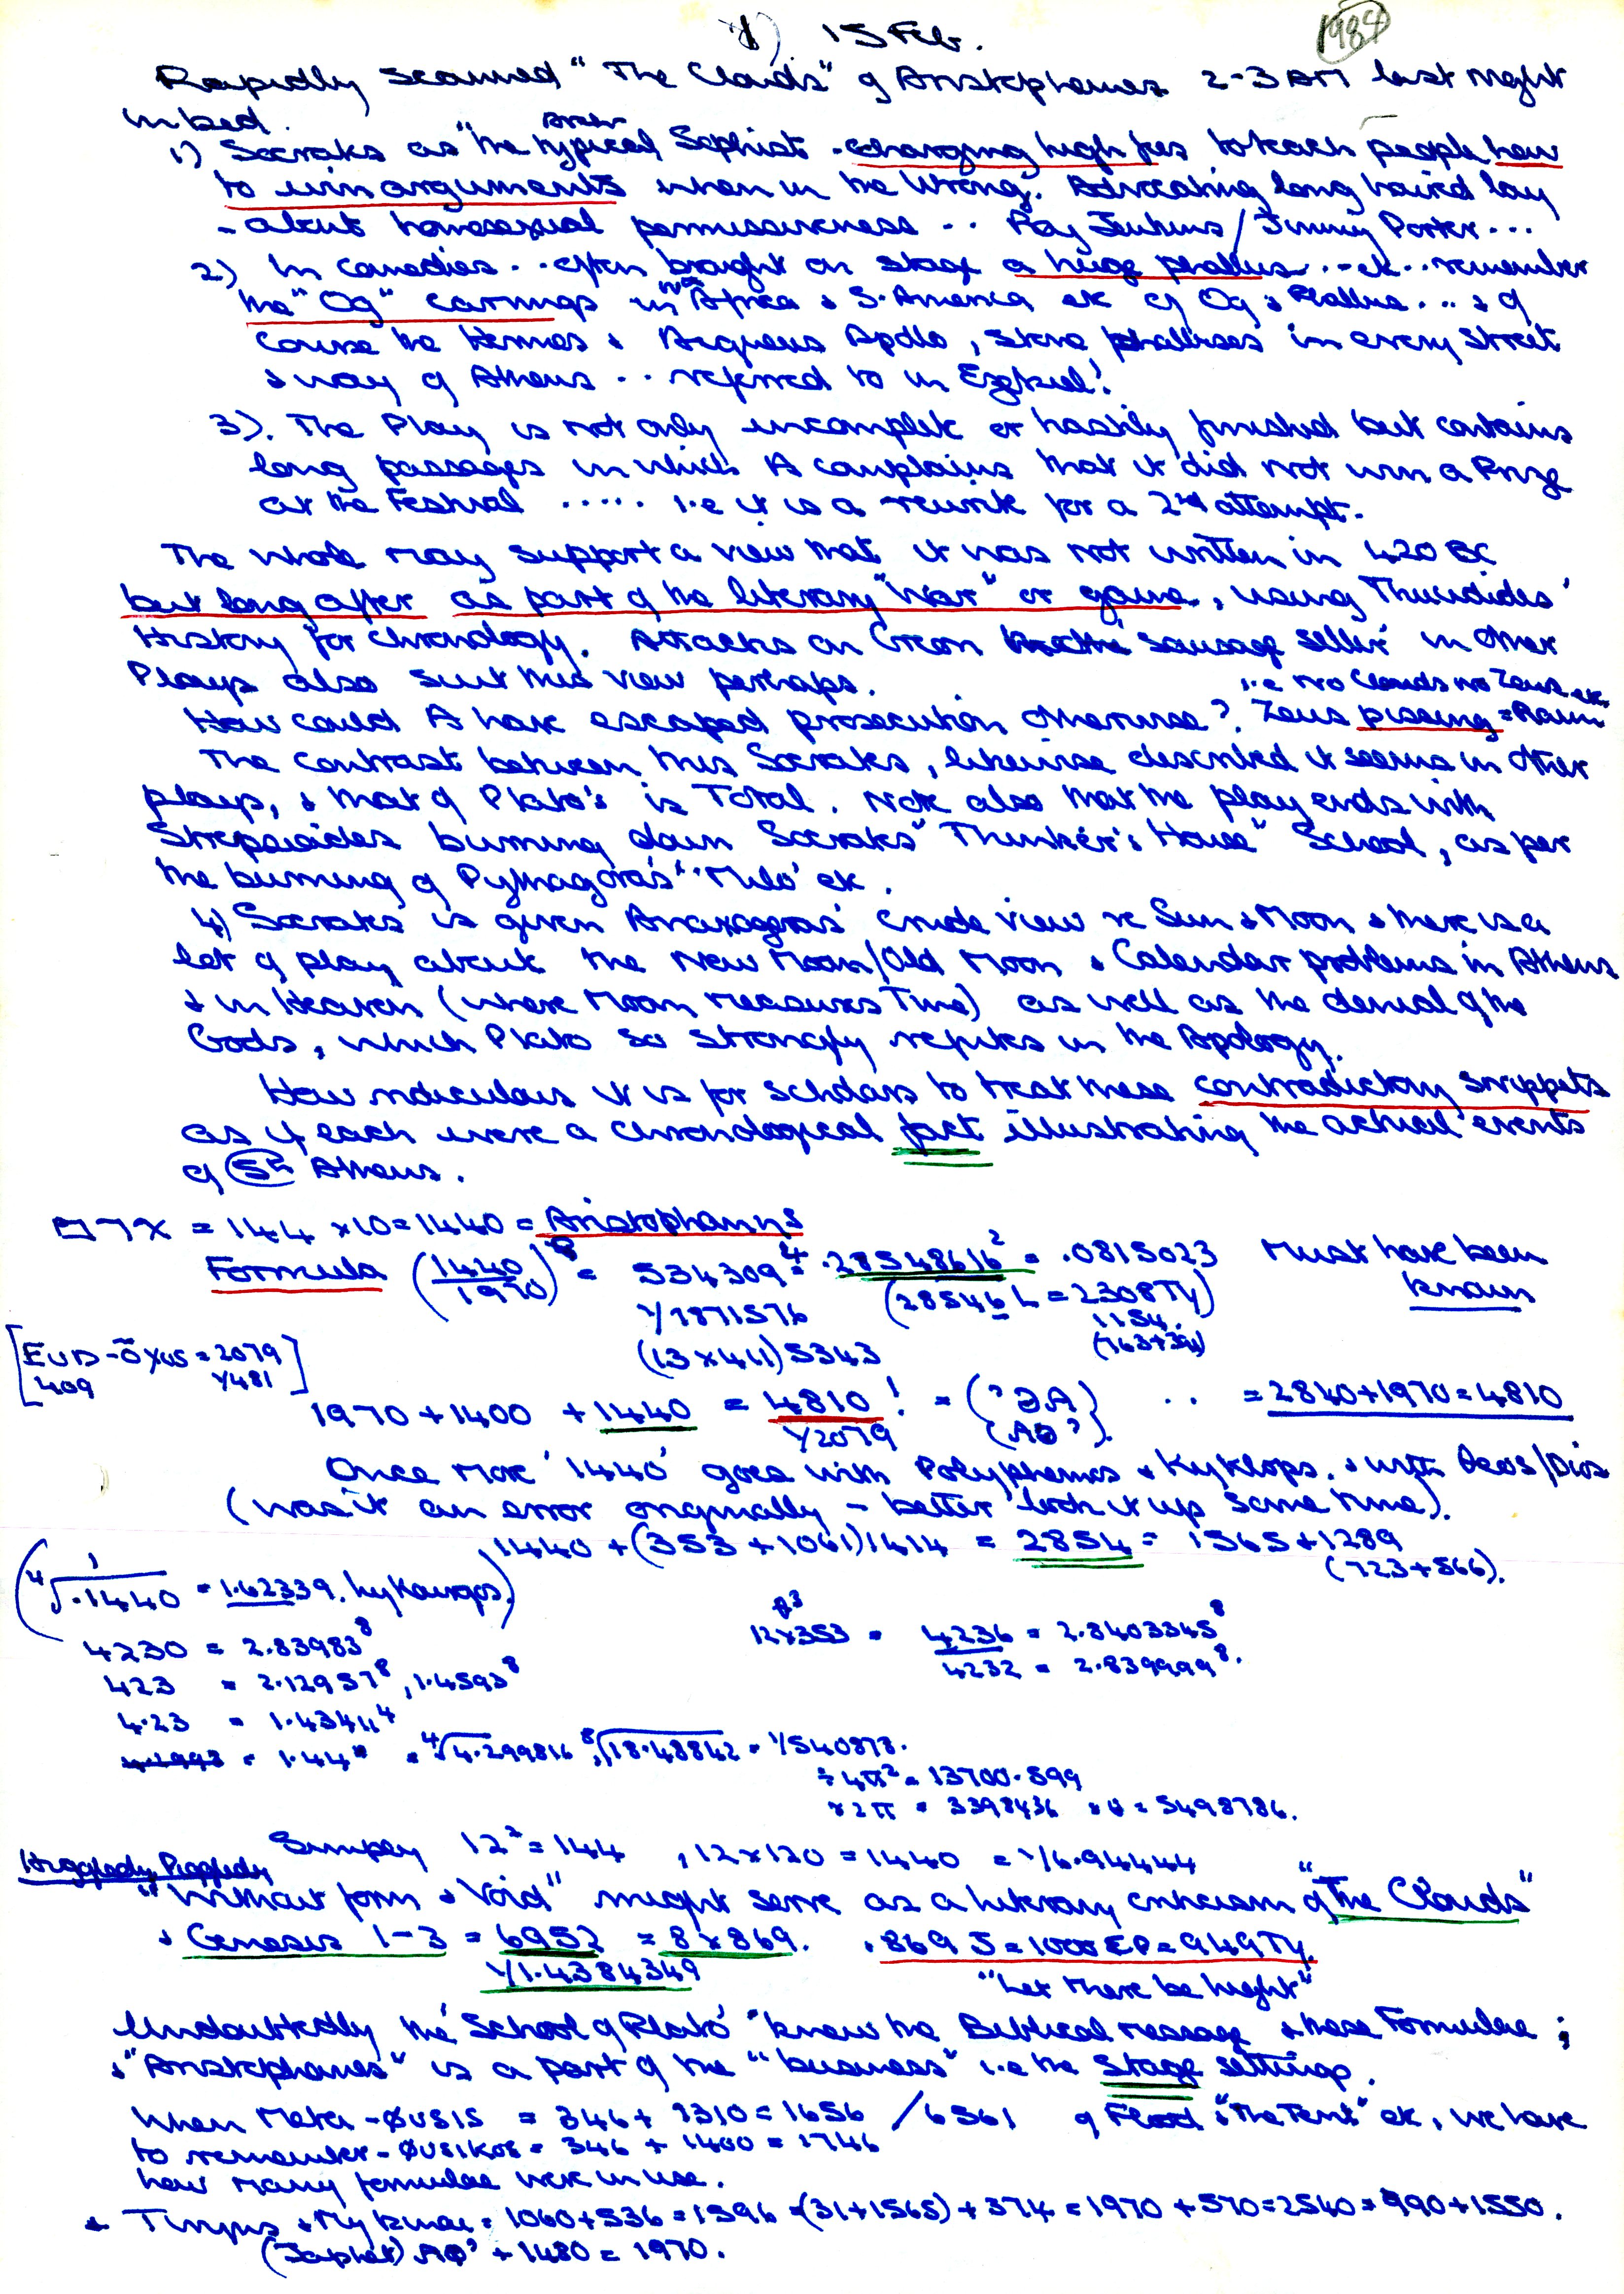 1) 15 Feb. 1984
Rapidly scanned "The Clouds" of Aristophanes 2-3 AM last night
in bed.
1) Socrates as "the typical Sophist - charging high fees to teach people how
to win arguments when in the Wrong. Advocating long haired lay
- about homosexual permissiveness .. Roy Jenkins / Jimmy Porter ...
2) In comedies .. often brought on stage a huge phallus .. etc .. remember
the "Og" carvings in Africa & S. America etc of Og & Phallus ... & of
course the Hermes & Apollo, stone phalluses in every street
& way of Athens .. referred to in Ezekiel!
3). The Play is not only incomplete or hastily finished but contains
long passages in which A complains that it did not win a Prize
at the Festival ..... i.e it is a rewrite for a 2nd attempt.
The whole may support a view that it was not written in 420 BC
but long after as part of the literary "War" or game, using Thucidides'
History for chronology. Attacks on sausage seller in other
Plays also suit this view perhaps. i.e no Clouds no Zeus etc.
How could A have escaped prosecution otherwise? Zeus pissing = Rain
The contrast between this Socrates, likewise described it seems in other
plays, & that of Plato's is Total. Note also that the play ends with
Strepsiades burning down Socrates "Thinker's House" School, as per
the burning of Pythagoras' "Milo' etc.
4) Socrates is given Anaxagoras' crude view re Sun & Moon & there is a
lot of play about the New Moon/Old Moon & Calendar problems in Athens
& in Heaven (where Moon measures Time) as well as the denial of the
Gods, which Plato so strongly refutes in the Apology.
How ridiculous it is for scholars to treat these contradictory snippets
as if each were a chronological fact illustrating the actual events
of 5th Athens.
= 144 x 10 = 1440 = Aristophanns
Formula (1440/1970)8 = 5343094 = .285486162 = .0815023 Must have been
known
1/1871576 (28546 L = 2308 Ty)
1154.
[EUD-OXUS = 2079] (13 x 411) 5343
409 1/481
1970 + 1400 + 1440 = 4810! = .. = 2840 + 1970 = 4810
1/2079
Once more '1440' goes with Polyphemos & Kyklops. & with θeos/Dios
(was it an error originally - better look it up some time).
1440 + (353 + 1061) 1414 = 2854 = 1565 + 1289
(723 + 566).
(4√.1440 = 1.62339.
12 x 353 = 4236 = 2.84033458
4230 = 2.839838
4232 = 2.8399998.
423 = 2.129578, 1.45938
4.23 = 1.434114
= 1.44 = 4√4.299816 8√18.48842 = 1/540878.
÷ 4π2 = 13700.599
x 2π = 3398436 = 5498786.
Simply 122 = 144, 12 x 120 = 1440 = 1/6.94444
Higgledy Piggledy
"Without form & Void" might serve as a literary criticism of "The Clouds"
& Genesis 1-3 = 6952 = 8 x 869. .869 S = 1000 EP = 949 Ty.
1/1.4384349 "Let there be light"
Undoubtedly the 'School of Plato' knew the Biblical message & these Formulae;
& "Aristophanes" is a part of the "business" i.e the Stage settings.
When Meta-ØUSIS = 346 + 1310 = 1656 / 6561 of Flood & "The Tent" etc, we have
to remember - ØUSIKOS = 346 + 1400 = 1746
how many formulae were in use.
& Tiryns & Mykinai = 1060 + 536 = 1596 = (31 + 1565) + 374 = 1970 + 570 = 2540 = 990 + 1550.
(Japhet) + 1480 = 1970.